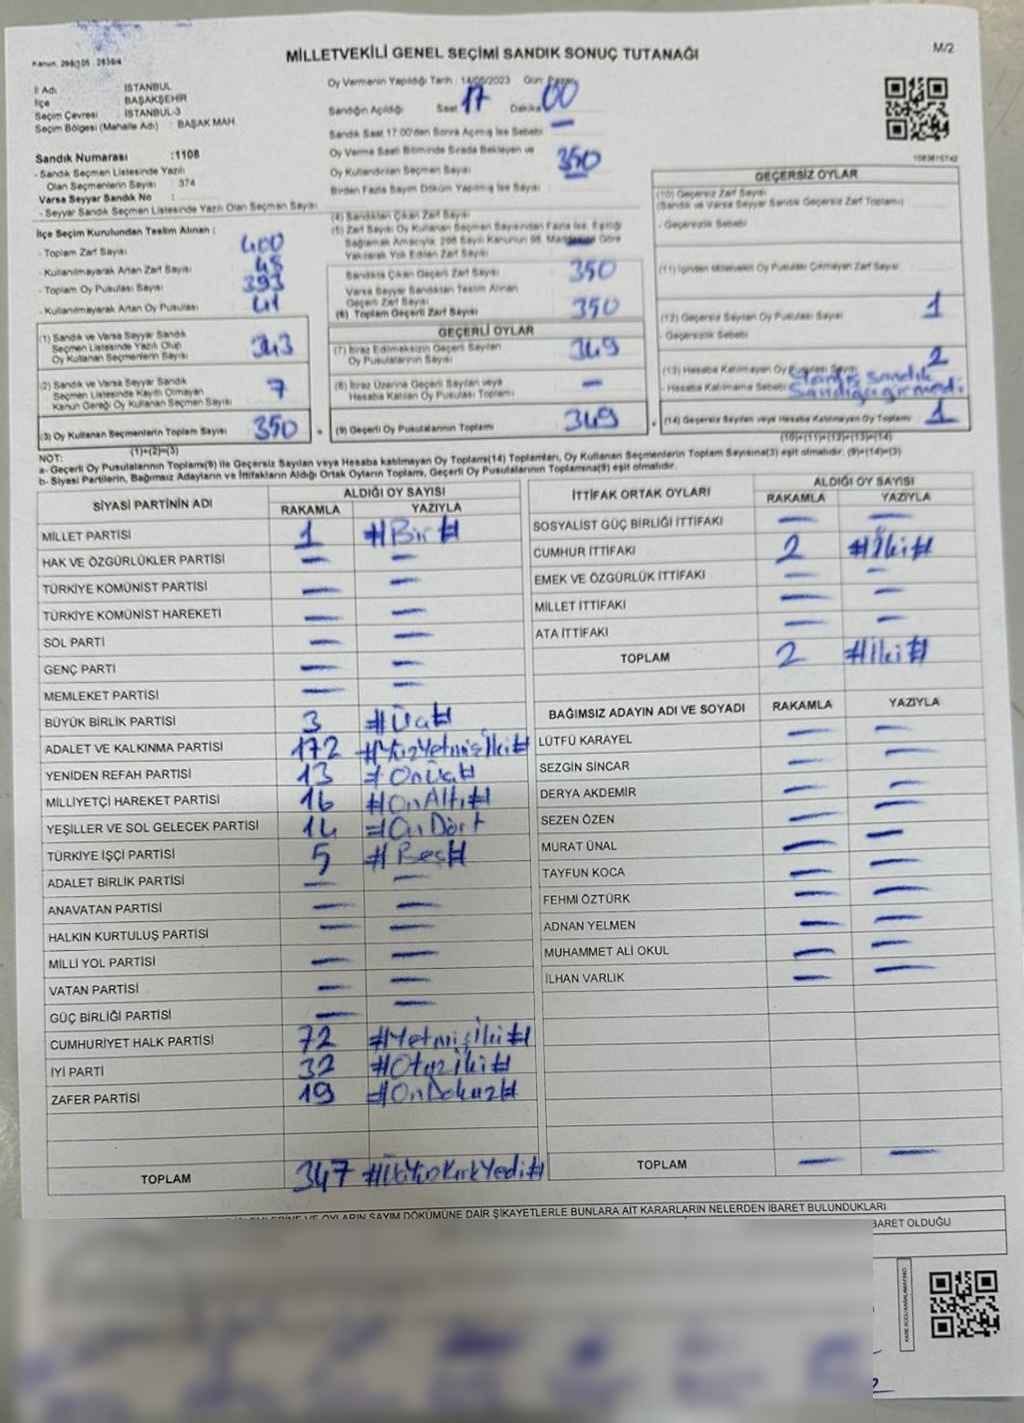 MİLLETVEKİLİ GENEL SEÇİMİ SANDIK SONUÇ TUTANAĞI
M/2
İl Adı İSTANBUL
İlçe BAŞAKŞEHİR
Seçim Çevresi : İSTANBUL-3
Seçim Bölgesi (Mahalle Adı) : BAŞAK MAH.
Sandık Numarası :1108
- Sandık Seçmen Listesinde Yazılı
Olan Seçmenlerin Sayısı : 374
Varsa Seyyar Sandık No :
- Seyyar Sandık Seçmen Listesinde Yazılı Olan Seçmen Sayısı
Oy Vermenin Yapıldığı Tarih : 14/05/2023 Gün: Pazar
Sandığın Açıldığı Saat 17 Dakika 00
Sandık Saat 17:00'den Sonra Açılmış İse Sebebi —
Oy Verme Saati Bitiminde Sırada Bekleyen ve
Oy Kullandırılan Seçmen Sayısı 350
Birden Fazla Sayım Döküm Yapılmış İse Sayısı :
İlçe Seçim Kurulundan Teslim Alınan :
- Toplam Zarf Sayısı 400
- Kullanılmayarak Artan Zarf Sayısı 45
- Toplam Oy Pusulası Sayısı 393
- Kullanılmayarak Artan Oy Pusulası 41
(1) Sandık ve Varsa Seyyar Sandık
Seçmen Listesinde Yazılı Olup
Oy Kullanan Seçmenlerin Sayısı 343
(2) Sandık ve Varsa Seyyar Sandık
Seçmen Listesinde Kayıtlı Olmayan
Kanun Gereği Oy Kullanan Seçmen Sayısı 7
(3) Oy Kullanan Seçmenlerin Toplam Sayısı 350
(1)+(2)=(3)
(4) Sandıktan Çıkan Zarf Sayısı
(5) Zarf Sayısı Oy Kullanan Seçmen Sayısından Fazla İse, Eşitliği
Sağlamak Amacıyla, 298 Sayılı Kanunun 98. Maddesine Göre
Yakılarak Yok Edilen Zarf Sayısı
Sandıkta Çıkan Geçerli Zarf Sayısı 350
Varsa Seyyar Sandıktan Teslim Alınan
Geçerli Zarf Sayısı
(6) Toplam Geçerli Zarf Sayısı 350
GEÇERLİ OYLAR
(7) İtiraz Edilmeksizin Geçerli Sayılan
Oy Pusulalarının Sayısı 349
(8) İtiraz Üzerine Geçerli Sayılan veya
Hesaba Katılan Oy Pusulası Toplamı —
(9) Geçerli Oy Pusulalarının Toplamı 349
GEÇERSİZ OYLAR
(10) Geçersiz Zarf Sayısı
(Sandık ve Varsa Seyyar Sandık Geçersiz Zarf Toplamı)
- Geçersizlik Sebebi
(11) İçinden Milletvekili Oy Pusulası Çıkmayan Zarf Sayısı
(12) Geçersiz Sayılan Oy Pusulası Sayısı 1
- Geçersizlik Sebebi
(13) Hesaba Katılmayan Oy Pusulası Sayısı 2
- Hesaba Katılmama Sebebi
(14) Geçersiz Sayılan veya Hesaba Katılmayan Oy Toplamı 1
(10)+(11)+(12)+(13)=(14)
NOT:
a- Geçerli Oy Pusulalarının Toplamı(9) ile Geçersiz Sayılan veya Hesaba katılmayan Oy Toplamı(14) Toplamları, Oy Kullanan Seçmenlerin Toplam Sayısına(3) eşit olmalıdır. (9)+(14)=(3)
b- Siyasi Partilerin, Bağımsız Adayların ve İttifakların Aldığı Ortak Oyların Toplamı, Geçerli Oy Pusulalarının Toplamına(9) eşit olmalıdır.
SİYASİ PARTİNİN ADI ALDIĞI OY SAYISI
RAKAMLA YAZIYLA
MİLLET PARTİSİ 1 #Bir#
HAK VE ÖZGÜRLÜKLER PARTİSİ — —
TÜRKİYE KOMÜNİST PARTİSİ — —
TÜRKİYE KOMÜNİST HAREKETİ — —
SOL PARTİ — —
GENÇ PARTİ — —
MEMLEKET PARTİSİ — —
BÜYÜK BİRLİK PARTİSİ 3 #Üç#
ADALET VE KALKINMA PARTİSİ 172 #YüzYetmişİki#
YENİDEN REFAH PARTİSİ 13 #OnÜç#
MİLLİYETÇİ HAREKET PARTİSİ 16 #OnAltı#
YEŞİLLER VE SOL GELECEK PARTİSİ 14 #OnDört
TÜRKİYE İŞÇİ PARTİSİ 5 #Beş#
ADALET BİRLİK PARTİSİ — —
ANAVATAN PARTİSİ — —
HALKIN KURTULUŞ PARTİSİ — —
MİLLİ YOL PARTİSİ — —
VATAN PARTİSİ — —
GÜÇ BİRLİĞİ PARTİSİ — —
CUMHURİYET HALK PARTİSİ 72 #Yetmişİki#
İYİ PARTİ 32 #Otuzİki#
ZAFER PARTİSİ 19 #OnDokuz#
TOPLAM 347 #ÜçYüzKırkYedi#
İTTİFAK ORTAK OYLARI ALDIĞI OY SAYISI
RAKAMLA YAZIYLA
SOSYALİST GÜÇ BİRLİĞİ İTTİFAKI — —
CUMHUR İTTİFAKI 2 #İki#
EMEK VE ÖZGÜRLÜK İTTİFAKI — —
MİLLET İTTİFAKI — —
ATA İTTİFAKI — —
TOPLAM 2 #İki#
BAĞIMSIZ ADAYIN ADI VE SOYADI RAKAMLA YAZIYLA
LÜTFÜ KARAYEL — —
SEZGİN SİNCAR — —
DERYA AKDEMİR — —
SEZEN ÖZEN — —
MURAT ÜNAL — —
TAYFUN KOCA — —
FEHMİ ÖZTÜRK — —
ADNAN YELMEN — —
MUHAMMET ALİ OKUL — —
İLHAN VARLIK — —
TOPLAM — —
VE OYLARIN SAYIM DÖKÜMÜNE DAİR ŞİKAYETLERLE BUNLARA AİT KARARLARIN NELERDEN İBARET BULUNDUKLARI
İBARET OLDUĞU